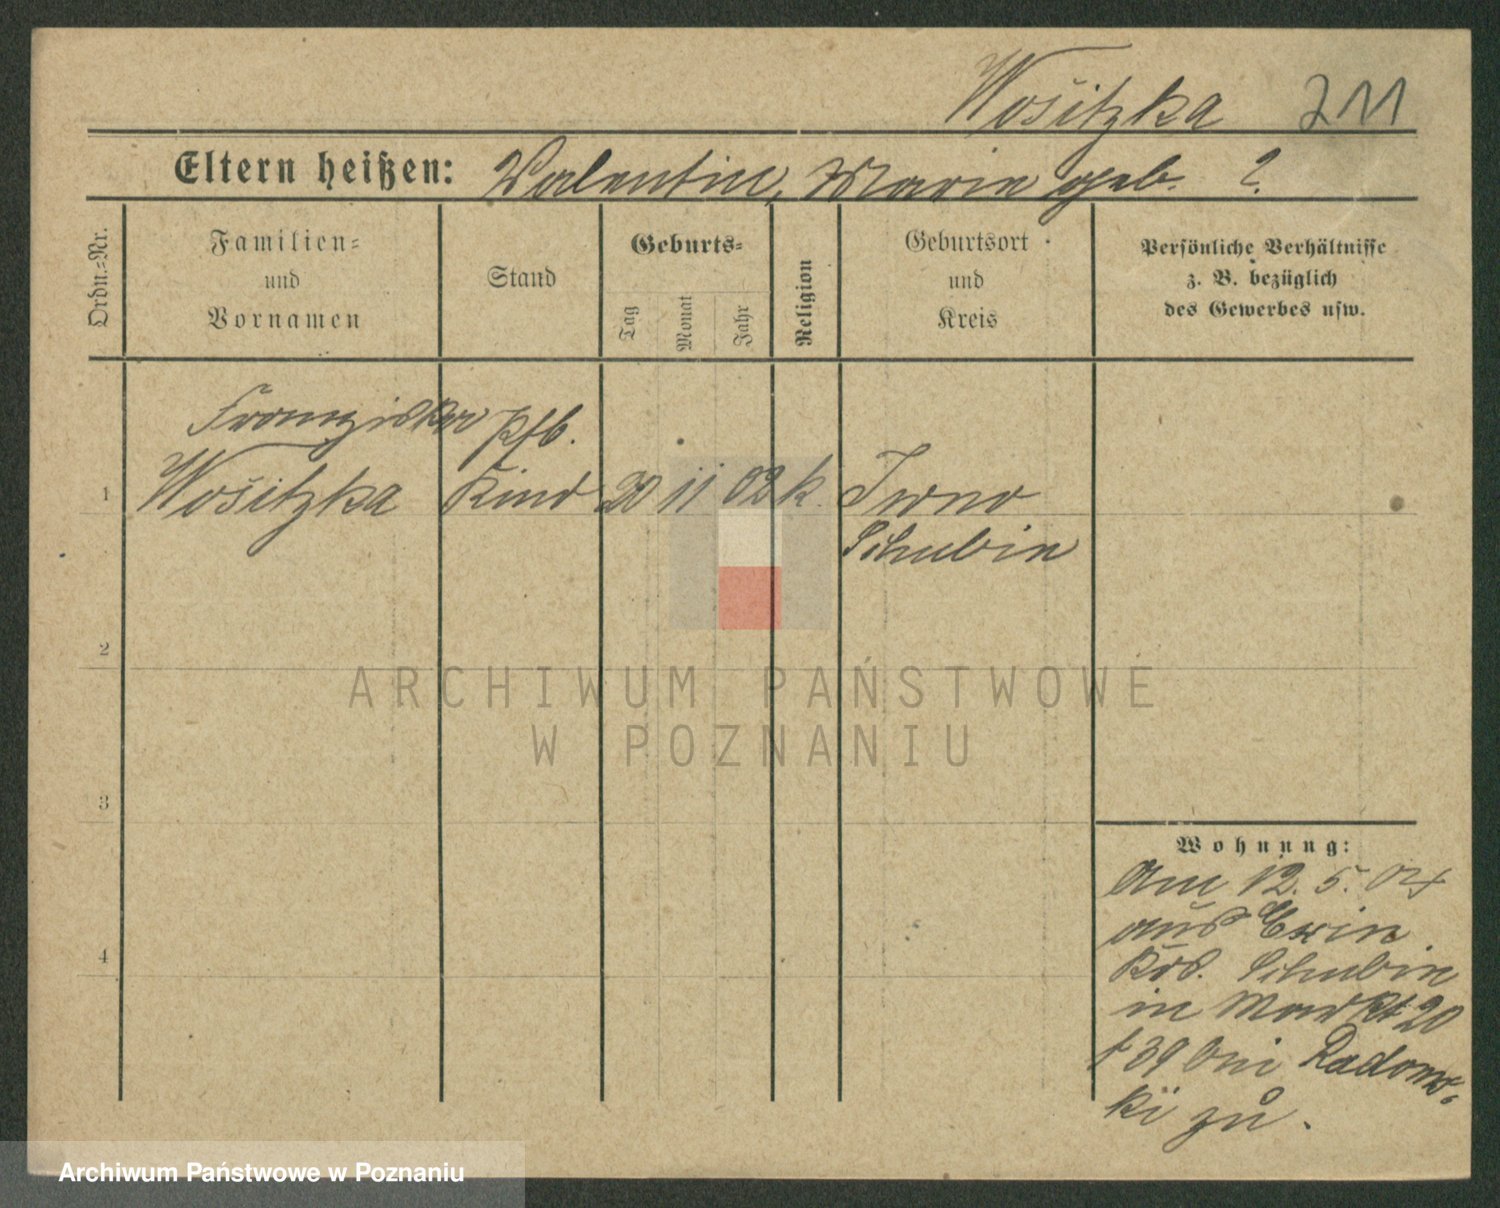 Wositzka 211
Eltern heißen: Valentin, Marie geb. ?
Ordn.-Nr.
Familien-
und
Vornamen
Stand
Geburts-
Tag
Monat
Jahr
Religion
Geburtsort
und
Kreis
Persönliche Verhältnisse
z. B. bezüglich
des Gewerbes usw.
Franziska Pfb.
1 Wositzka Kind 20 11 02 k.
Schubin
2
3
4
Wohnung:
Am 12. 5. 04
aus Exin
Krs. Schubin
in Markt 20
bei Radoms-
ki zu.
ARCHIWUM PAŃSTWOWE
W POZNANIU
Archiwum Państwowe w Poznaniu